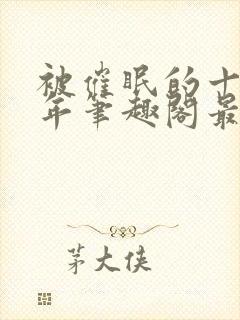 被催眠的十
年笔趣阁最
茅大侠